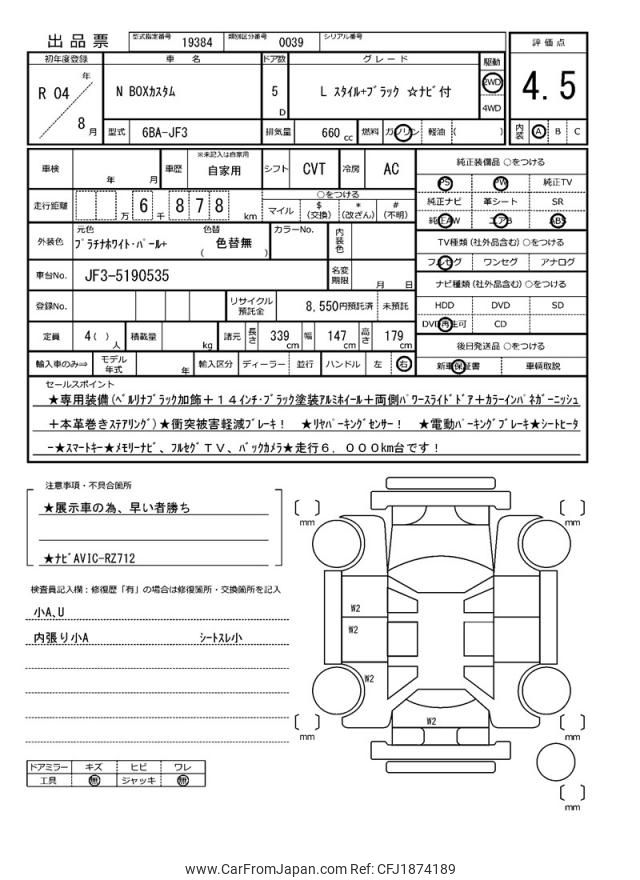 出品票 型式指定番号 19384 類別区分番号 0039 シリアル番号
評価点
4.5
内装 A B C
初年度登録 車名 ドア数 グレード 駆動
R 04 年 8 月
N BOXカスタム 5 D L スタイル+ブラック ☆ナビ付 2WD 4WD
型式 6BA-JF3 排気量 660 cc 燃料 ガソリン 軽油 ( )
車検 年 月 車歴 ※未記入は自家用 自家用 シフト CVT 冷房 AC
純正装備品 ○をつける
PS PW 純正TV
純正ナビ 革シート SR
純正AW エアB ABS
走行距離 万 6 千 8 7 8 km
○をつける
マイル $(交換) *(改ざん) #(不明)
外装色 元色 プラチナホワイト・パール+ 色替 ( 色替無 ) カラーNo. 内装色
TV種類 (社外品含む) ○をつける
フルセグ ワンセグ アナログ
車台No. JF3-5190535 名変期限 月 日
ナビ種類 (社外品含む) ○をつける
HDD DVD SD
DVD再生可 CD
登録No. リサイクル預託金 8,550円預託済 未預託
定員 4 ( ) 人 積載量 kg 諸元 長さ 339 cm 幅 147 cm 高さ 179 cm
後日発送品 ○をつける
新車保証書 車輌取説
輸入車のみ⇒ モデル年式 年 輸入区分 ディーラー 並行 ハンドル 左 右
セールスポイント
★専用装備(ベルリナブラック加飾+14インチ・ブラック塗装アルミホイール+両側パワースライドドア+カラーインパネガーニッシュ
+本革巻きステアリング)★衝突被害軽減ブレーキ! ★リヤパーキングセンサー! ★電動パーキングブレーキ★シートヒータ
ー★スマートキー★メモリーナビ、フルセグTV、バックカメラ★走行6,000km台です!
注意事項・不具合箇所
★展示車の為、早い者勝ち
★ナビAVIC-RZ712
検査員記入欄:修復歴「有」の場合は修復箇所・交換箇所を記入
小A、U
内張り小A シートスレ小
ドアミラー キズ ヒビ ワレ
工具 無 ジャッキ 無
mm
mm
W2
W2
W2
W2
mm
mm
mm
www.CarFromJapan.com Ref: CFJ1874189